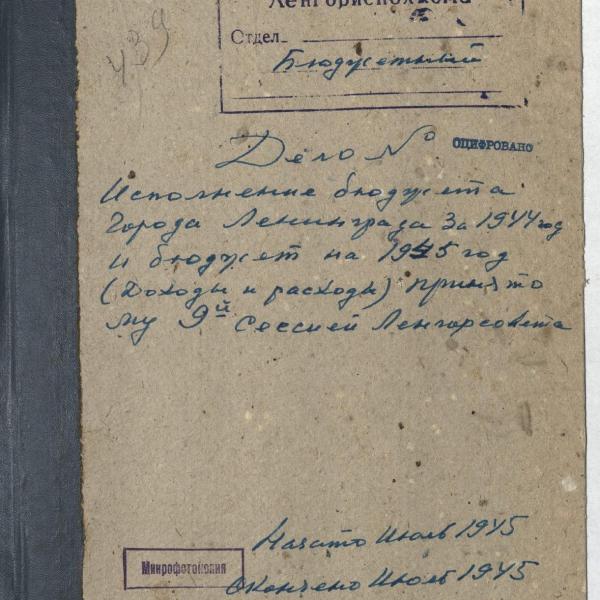 Ленгорисполкома
Отдел
Бюджетный
439
Дело №
ОЦИФРОВАНО
Исполнение бюджета
города Ленинграда за 1944 год
и бюджет на 1945 год
(Доходы и расходы) принято
му 9й Сессией Ленгорсовета
Начато Июль 1945
Микрофотокопия
Окончено Июль 1945